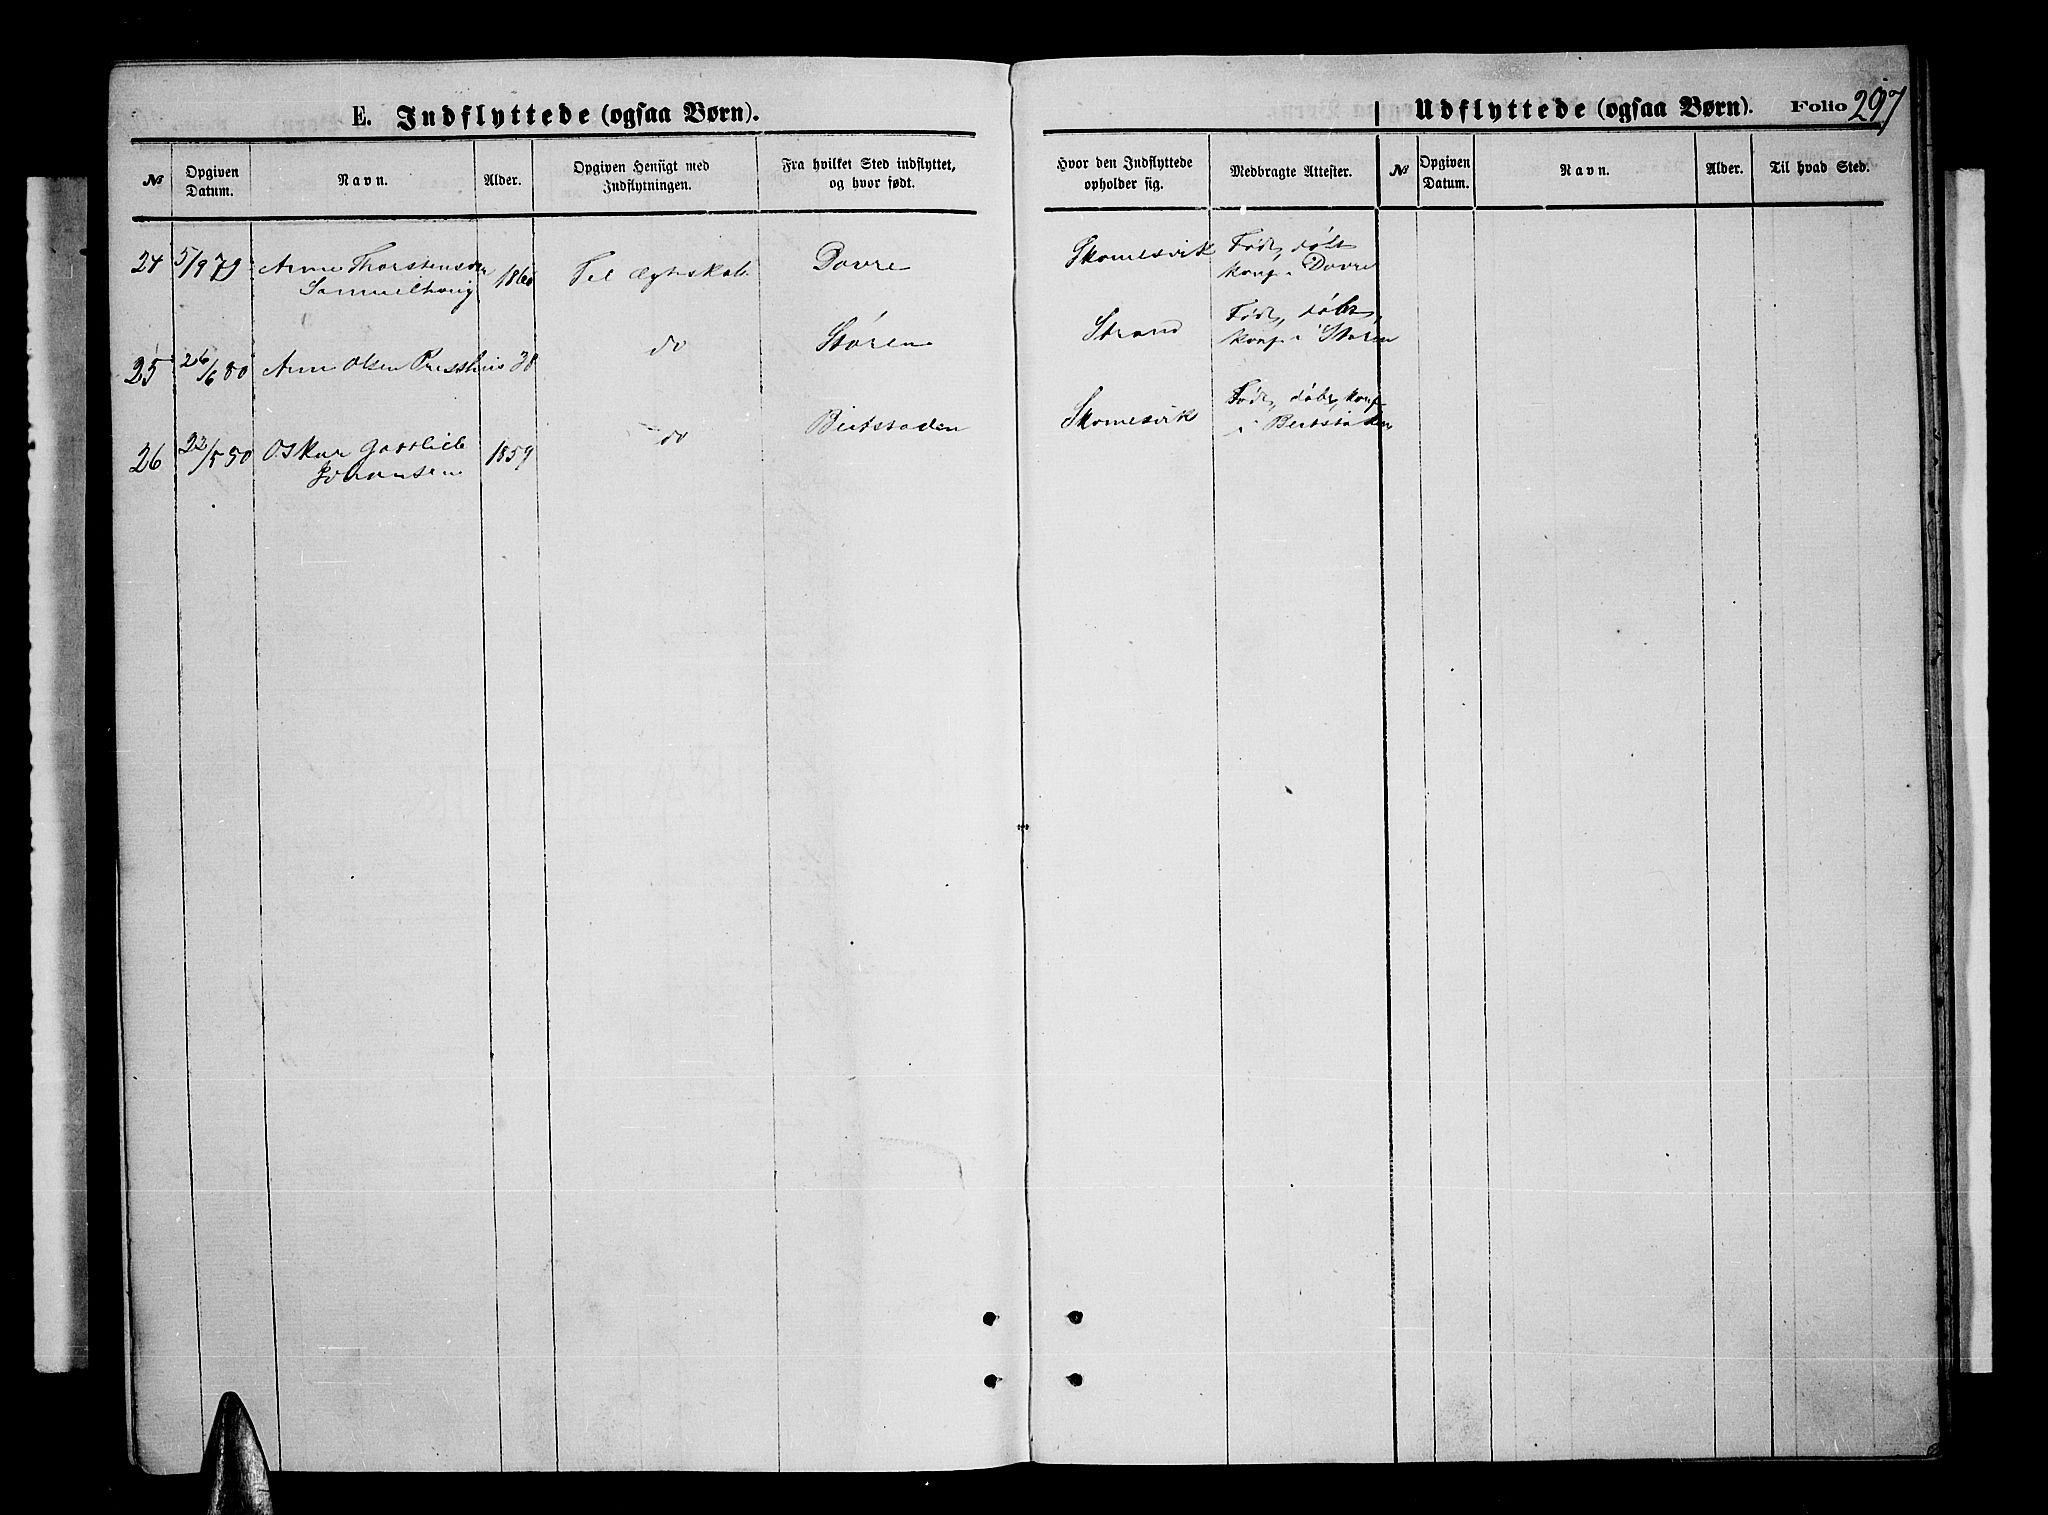 E. Indflyttede (ogsaa Børn).
Udflyttede (ogsaa Børn). Folio 297
№ Opgiven Datum. Navn. Alder. Opgiven Hensigt med Indflytningen. Fra hvilket Sted indflyttet, og hvor født.
Hvor den Indflyttede opholder sig. Medbragte Attester. № Opgiven Datum. Navn. Alder. Til hvad Sted.
24 5/9 79 Arne Thorstensen 1860 Til Ægteskab Dovre Skomesvik Født, døbt
konf. i Dovre
25 26/6 80 Arn Olsen 38 do Støren Strand Født, døbt,
konf. i Støren
26 22/5 80 Oskar Gottlieb 1859 do Beitstaden Skomesvik Født, døbt, konf
Johansen i Beitstaden